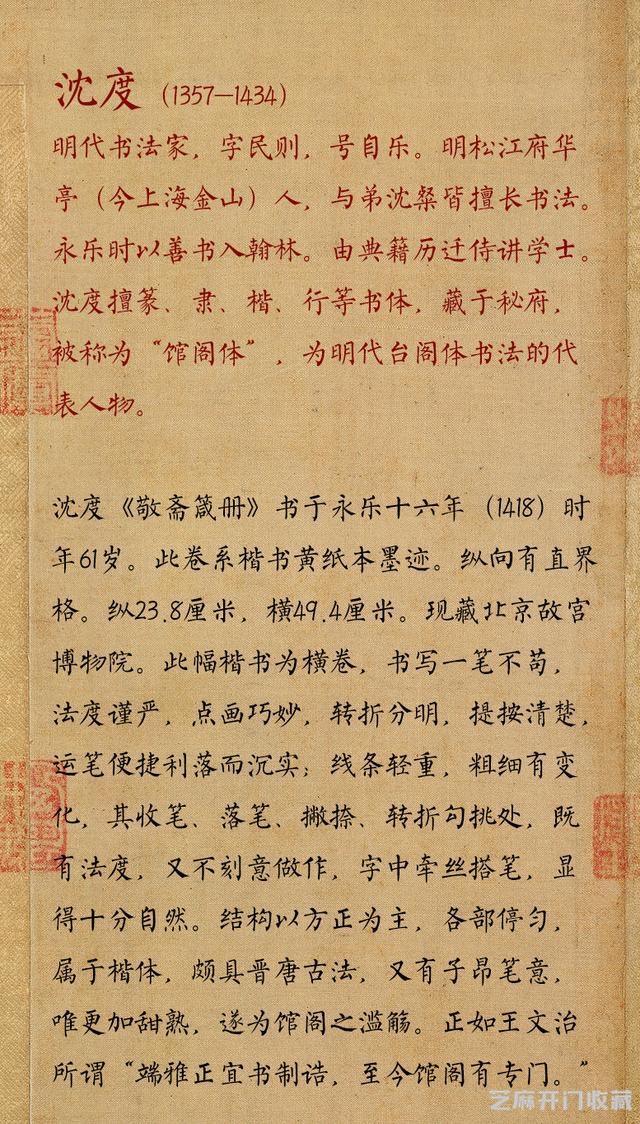 沈度（1357—1434）
明代书法家，字民则，号自乐。明松江府华
亭（今上海金山）人，与弟沈粲皆擅长书法。
永乐时以善书入翰林。由典籍历迁侍讲学士。
沈度擅篆、隶、楷、行等书体，藏于秘府，
被称为“馆阁体”，为明代台阁体书法的代
表人物。
沈度《敬斋箴册》书于永乐十六年（1418）时
年61岁。此卷系楷书黄纸本墨迹。纵向有直界
格。纵23.8厘米，横49.4厘米。现藏北京故宫
博物院。此幅楷书为横卷，书写一笔不苟，
法度谨严，点画巧妙，转折分明，提按清楚，
运笔便捷利落而沉实；线条轻重，粗细有变
化，其收笔、落笔、撇捺、转折勾挑处，既
有法度，又不刻意做作，字中牵丝搭笔，显
得十分自然。结构以方正为主，各部停匀，
属于楷体，颇具晋唐古法，又有子昂笔意，
唯更加甜熟，遂为馆阁之滥觞。正如王文治
所谓“端雅正宜书制诰，至今馆阁有专门。”
芝麻开门收藏